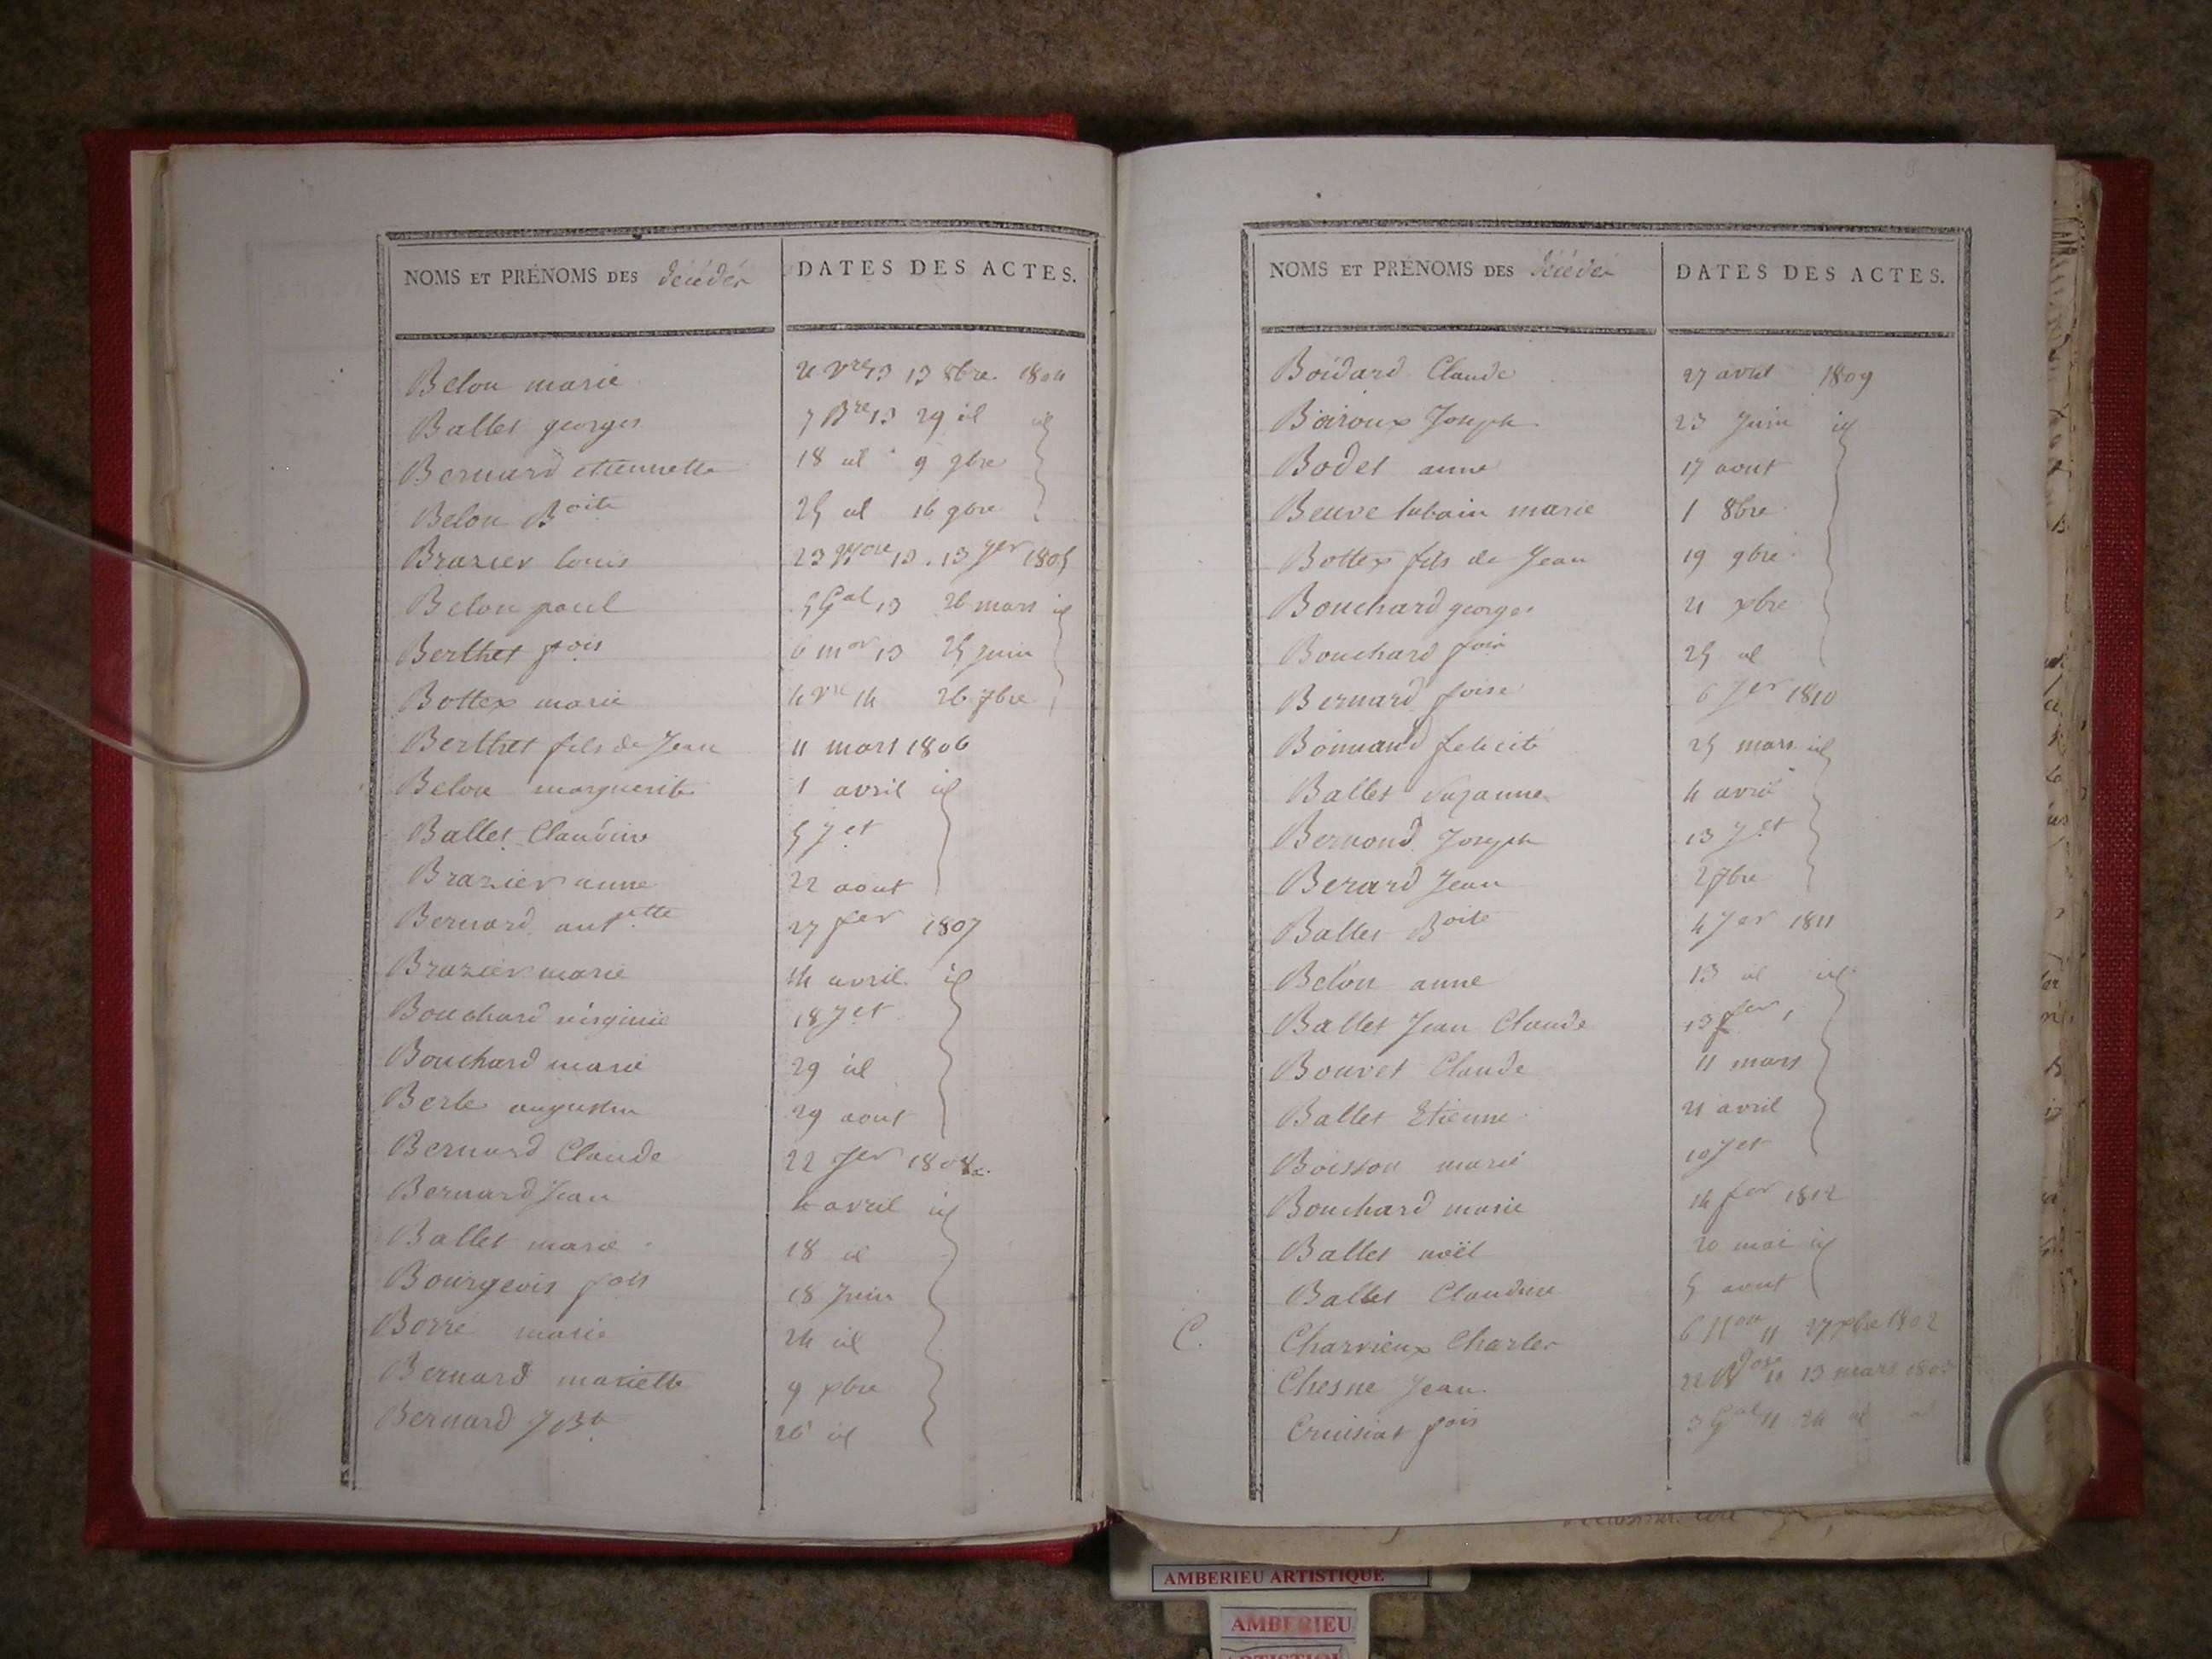 NOMS ET PRÉNOMS DES décédés DATES DES ACTES.
Belon marie 21 vre 13 13 8bre 1804
Ballet georges 7 Bre 13 29 id id
Bernard etiennette 18 id 9 9bre
Belon Boite 25 id 16 9bre
Brazier louis 23 13 . 13 Jer 1805
Belon paul 5 Gal 13 26 mars id
Berthet fois 6 mor 13 25 juin
Bottex marie 4 vre 14 26 7bre
Berthet fils de Jean 11 mars 1806
Belon marguerite 1 avril id
Ballet Claudine 5 Jet
Brazier anne 22 aout
Bernard antette 27 fer 1807
Brazier marie 14 avril id
Bouchard virginie 18 Jet
Bouchard marie 29 id
Berle augustin 29 aout
Bernard Claude 22 Jer 1808
Bernard Jean 4 avril id
Ballet marie 18 id
Bourgeois fois 18 Juin
Borre marie 24 id
Bernard mariette 9 xbre
Bernard J Bte 26 id
NOMS ET PRÉNOMS DES décédés DATES DES ACTES.
Boidard Claude 27 avril 1809
Boiroux Joseph 23 Juin id
Bodet anne 17 aout
Beuve lubain marie 1 8bre
Bottex fils de Jean 19 9bre
Bouchard georges 21 xbre
Bouchard fois 25 id
Bernard foise 6 Jer 1810
Bonnand felicité 25 mars id
Ballet Suzanne 4 avril
Bernond Joseph 13 Jet
Berard Jean 2 7bre
Ballet Boite 4 Jer 1811
Belon anne 13 id id
Ballet Jean Claude 13 fer
Bouvet Claude 11 mars
Ballet Etienne 21 avril
Boisson marie 10 Jet
Bouchard marie 14 fer 1812
Ballet noël 20 mai id
Ballet Claudine 5 aout
C. Charvieux Charles 6 11 27 xbre 1802
Chesne Jean 22 11 13 mars
Cruisiat fois 3 Gal 11 24 id
AMBERIEU ARTISTIQUE
AMBERIEU